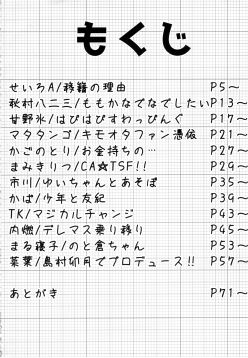 もくじ
せいろA/移籍の理由 P5～
秋村八二三/ももかなでなでしたい P13～
甘野氷/はぴはぴすわっぴんぐ P17～
マタタンゴ/キモオタファン憑依 P21～
かごのとり/お金持ちの… P27～
まみきりつ/CA☆TSF!! P29～
市川/ゆいちゃんとあそぼ P35～
かば/少年と友紀 P39～
TK/マジカルチャンジ P43～
内燃/デレマス乗り移り P45～
まる寝子/のと倉ちゃん P53～
菜葉/島村卯月でプロデュース!! P57～
あとがき P71～